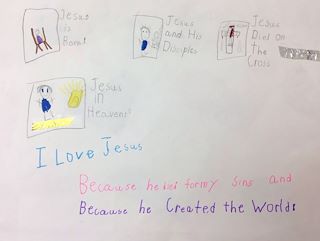 Jesus
is
Born!
Jesus
and His
Disciples
Jesus
Died on
the
Cross
Jesus
in
Heaven!
I Love Jesus
Because he died for my sins and
Because he Created the World!